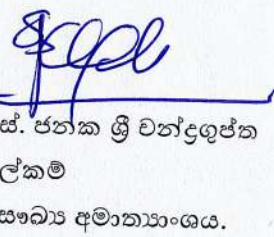 ස්. ජනක ශ්‍රී චන්ද්‍රගුප්ත
ල්කම්
සෞඛ්‍ය අමාත්‍යාංශය.